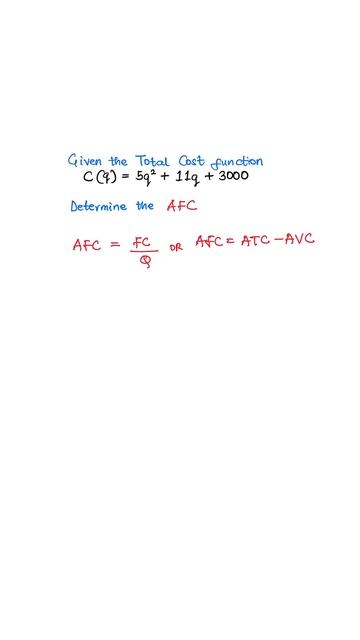 Given the Total Cost function
C(q) = 5q² + 11q + 3000
Determine the AFC
AFC = FC/Q OR AFC = ATC - AVC